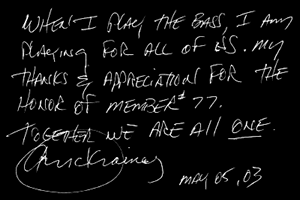 WHEN I PLAY THE BASS, I AM
PLAYING FOR ALL OF US. MY
THANKS & APPRECIATION FOR THE
HONOR OF MEMBER # 77.
TOGETHER WE ARE All ONE.
MAY 05, 03